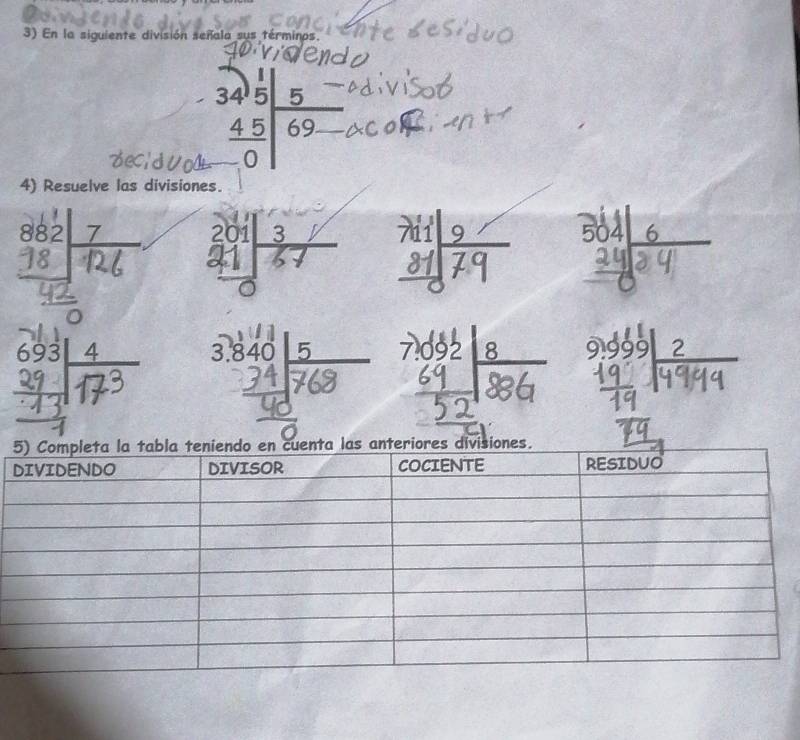 dividendo divisor conciente residuo
3) En la siguiente división señala sus términos.
Dividendo
345 5 divisob
45 69 acocient
deciduo 0
4) Resuelve las divisiones.
882 7 201 3 711 9 504 6
18 126 21 67 81 79 24 84
42 0 0 0
0
693 4 3.840 5 7.092 8 9.999 2
29 173 34 768 69 886 19 4999
13 40 52 19
1 0 4 19
1
5) Completa la tabla teniendo en cuenta las anteriores divisiones.
DIVIDENDO DIVISOR COCIENTE RESIDUO